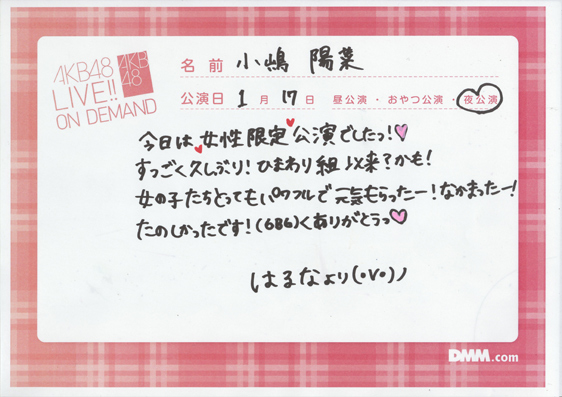 AKB48
LIVE!!
ON DEMAND
AKB48
名前 小嶋 陽菜
公演日 1月17日 昼公演・おやつ公演・夜公演
今日は女性限定公演でしたっ!♥
すっごく久しぶり!ひまわり組以来?かも!
女の子たちとってもパワフルで元気もらったー!なかまったー!
たのしかったです!(686)くありがとうっ♥
はるなより(・v・)ノ
DMM.com